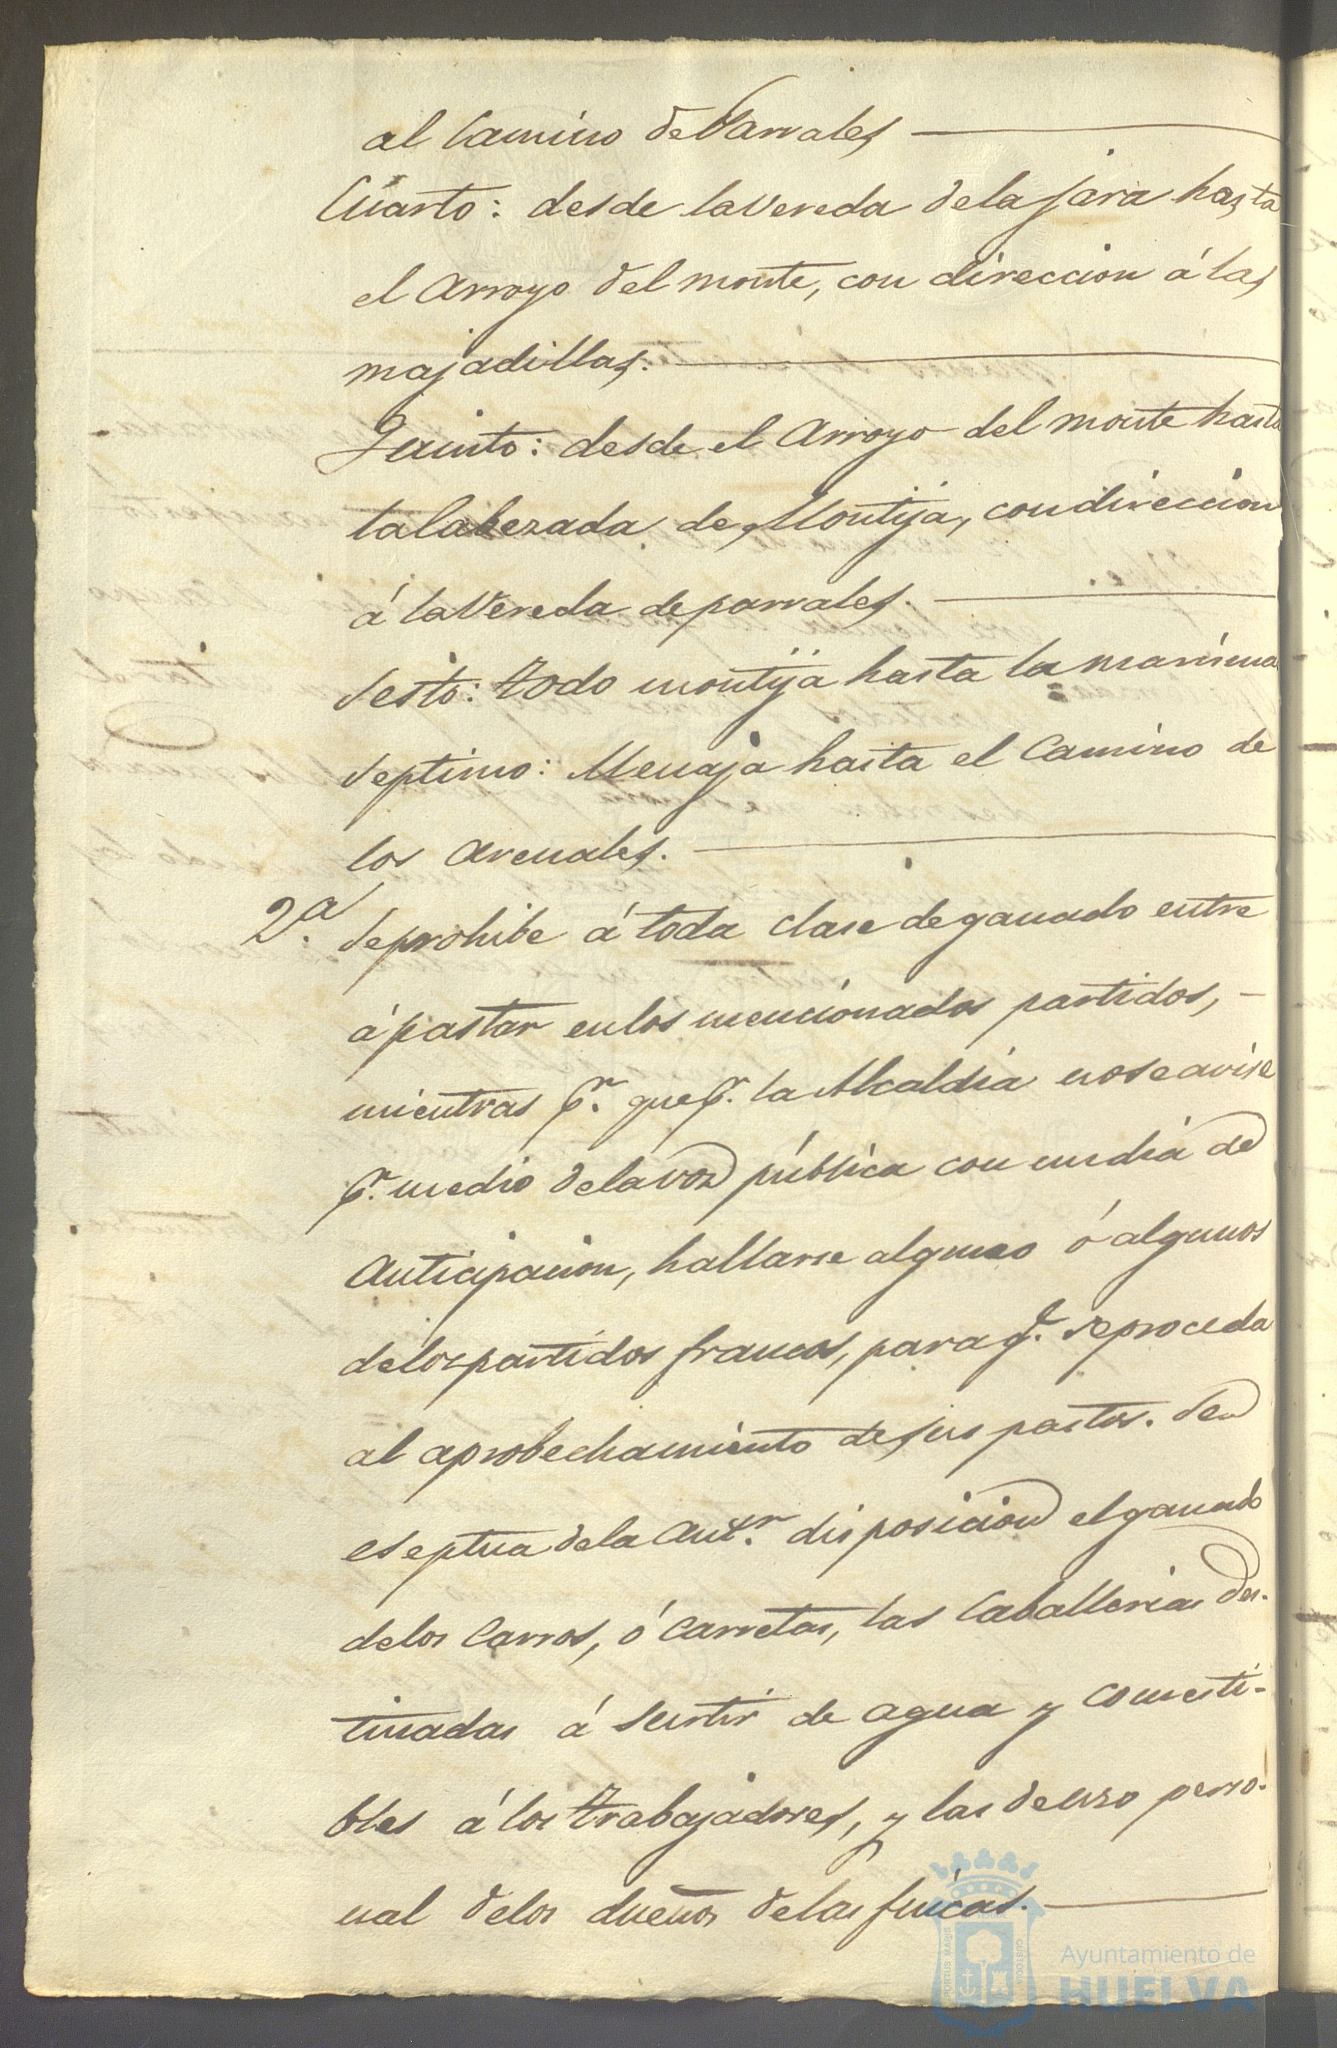 al Camino de Parrales
Cuarto: desde la vereda de la jara hasta
el Arroyo del monte, con direccion á las
majadillas.
Quinto: desde el Arroyo del monte hasta
la Cabezada de Montija, con direccion
á la Vereda de parrales.
Sesto: todo montija hasta la marisma
Septimo: Menaja hasta el Camino de
los arenales.
2.ª Se prohibe á toda clase de ganado entre
á pastar en los mencionados partidos,
mientras pr. que pr. la Alcaldia no se avise
pr. medio de la voz pública con un dia de
Anticipacion, hallarse alguno ó algunos
de los partidos francos, para qe. se proceda
al aprobechamiento de sus pastos. Se
eseptua de la antr. disposicion el ganado
de los Carros, ó Carretas, las Caballerias des-
tinadas á surtir de agua y comesti-
bles á los trabajadores, y las de uso perso-
nal de los dueños de las fincas.
Ayuntamiento de
HUELVA